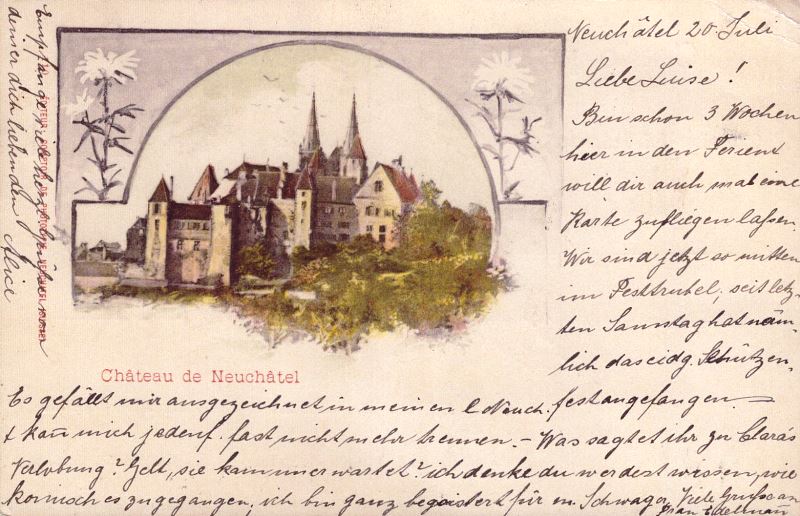 Neuchâtel 20. Juli
Liebe Luise!
Bin schon 3 Wochen
hier in den Ferien &
will dir auch mal eine
Karte zufliegen lassen.
Wir sind jetzt so mitten
im Festtrubel, seit letz-
ten Samstag hat näm-
lich das eidg. Schützen-
fest angefangen.
Château de Neuchâtel
Es gefällt mir ausgezeichnet in meinen l. Neuch.
& kann mich jedenf. fast nicht mehr trennen. – Was sagtet ihr zu Claras
Verlobung? Gelt, sie kam unerwartet? ich denke du werdest wissen, wie
komisch es zugegangen, ich bin ganz begeistert für m. Schwager. Viele Grüsse an
Frau Edelmann
Empfange viele herzl. Grüsse von
deiner dich liebenden Alice